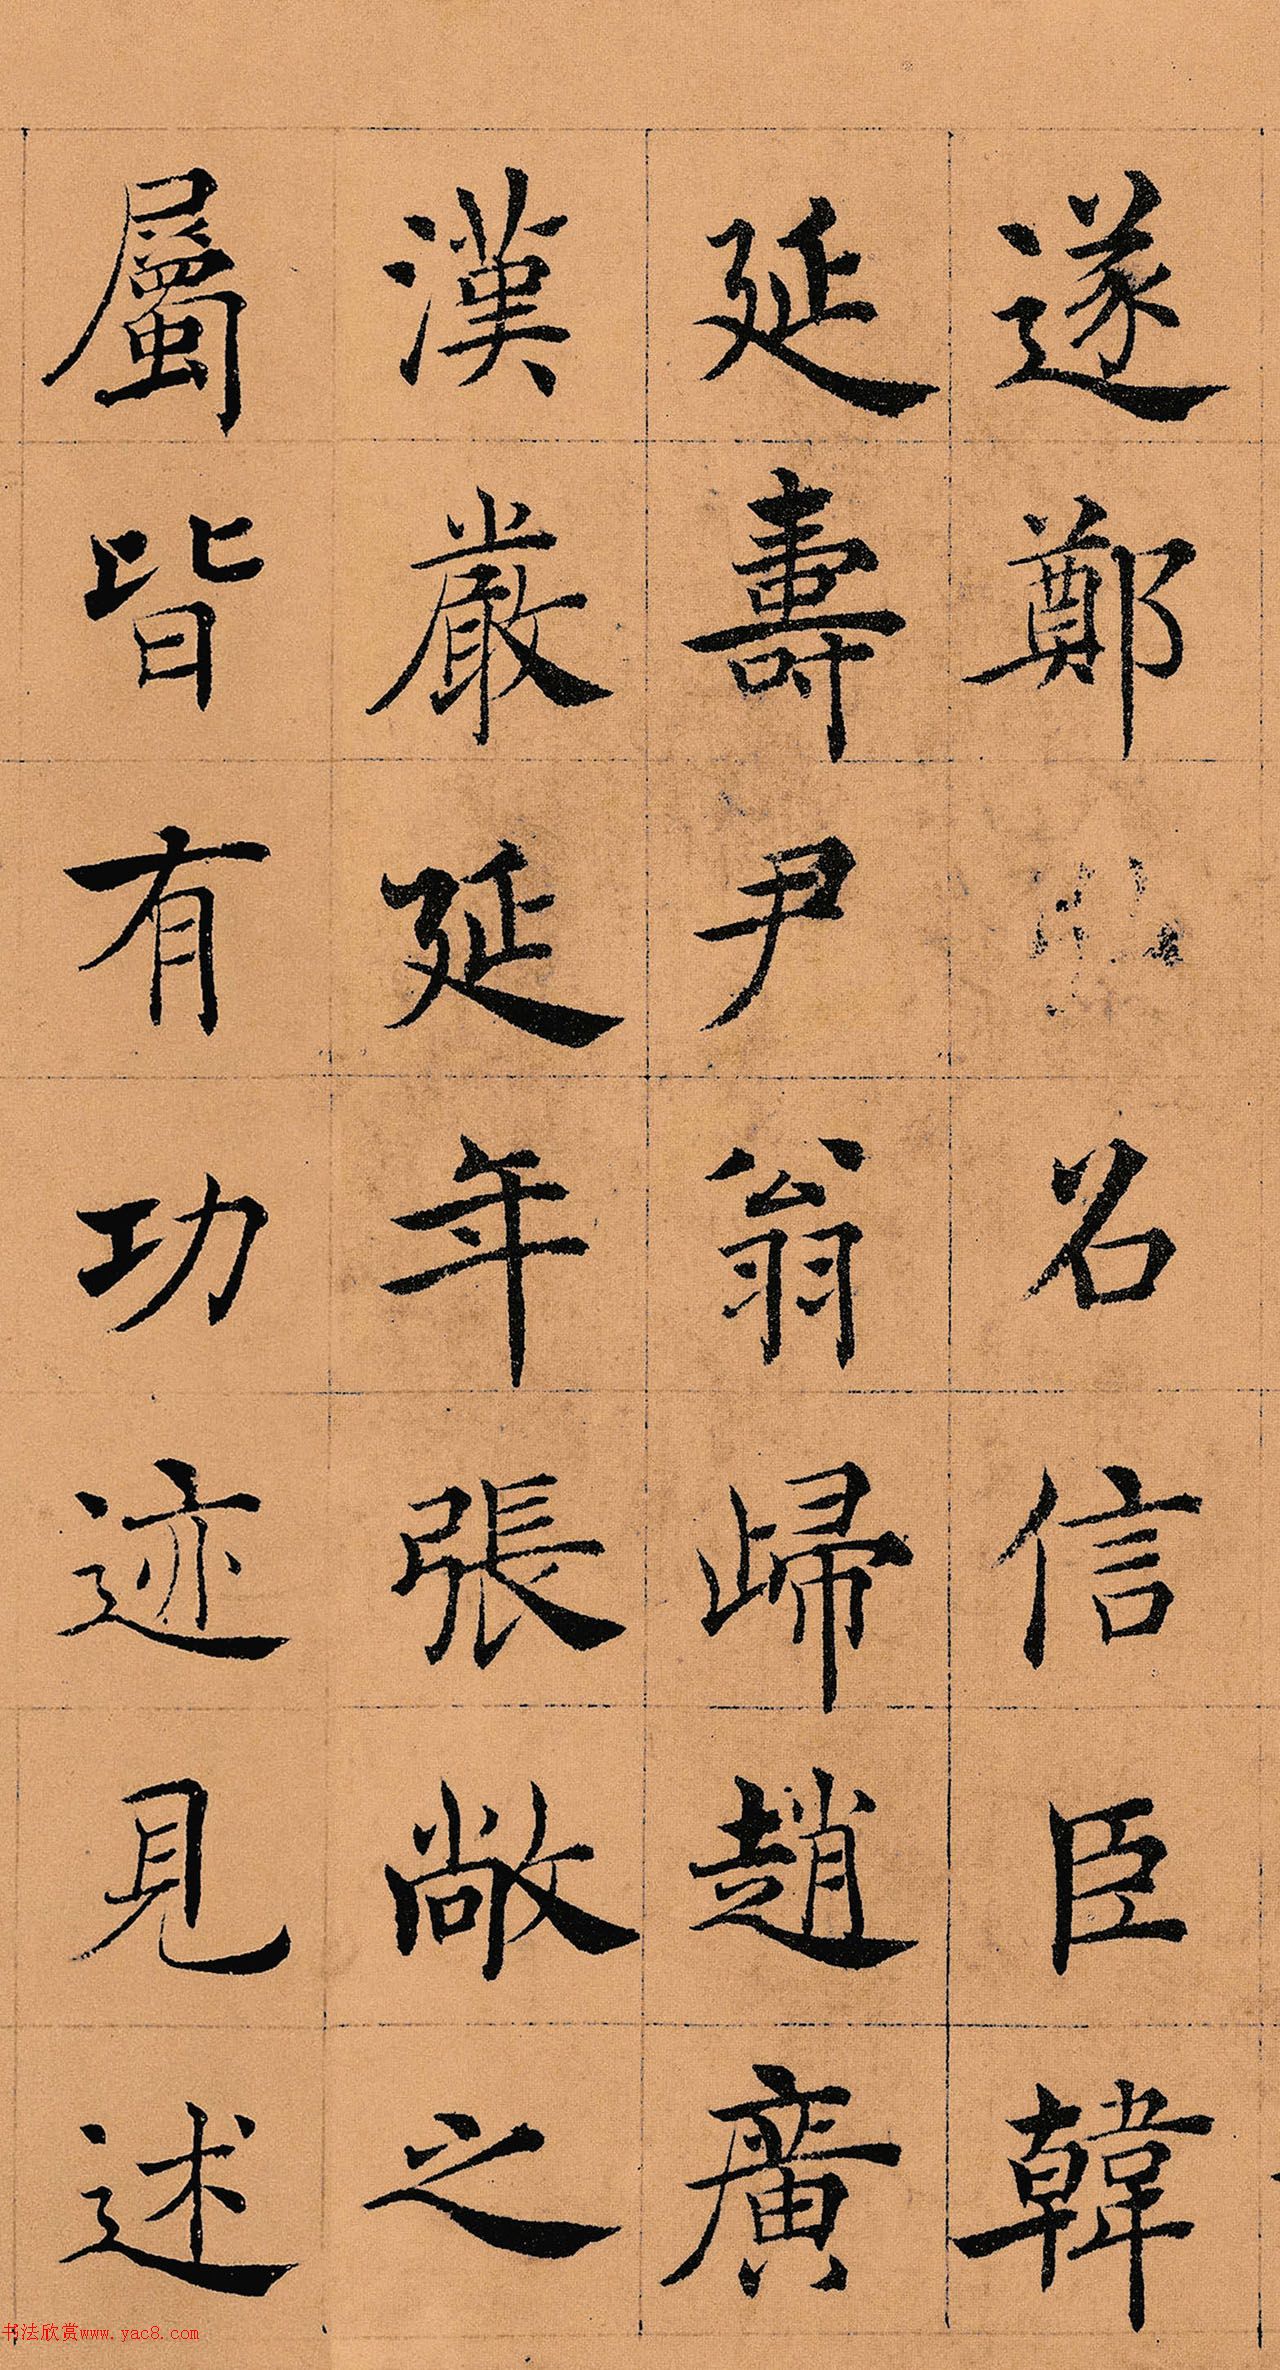 遂鄭召信臣韓
延壽尹翁歸趙廣
漢嚴延年張敞之
屬皆有功迹見述
书法欣赏www.yac8.com